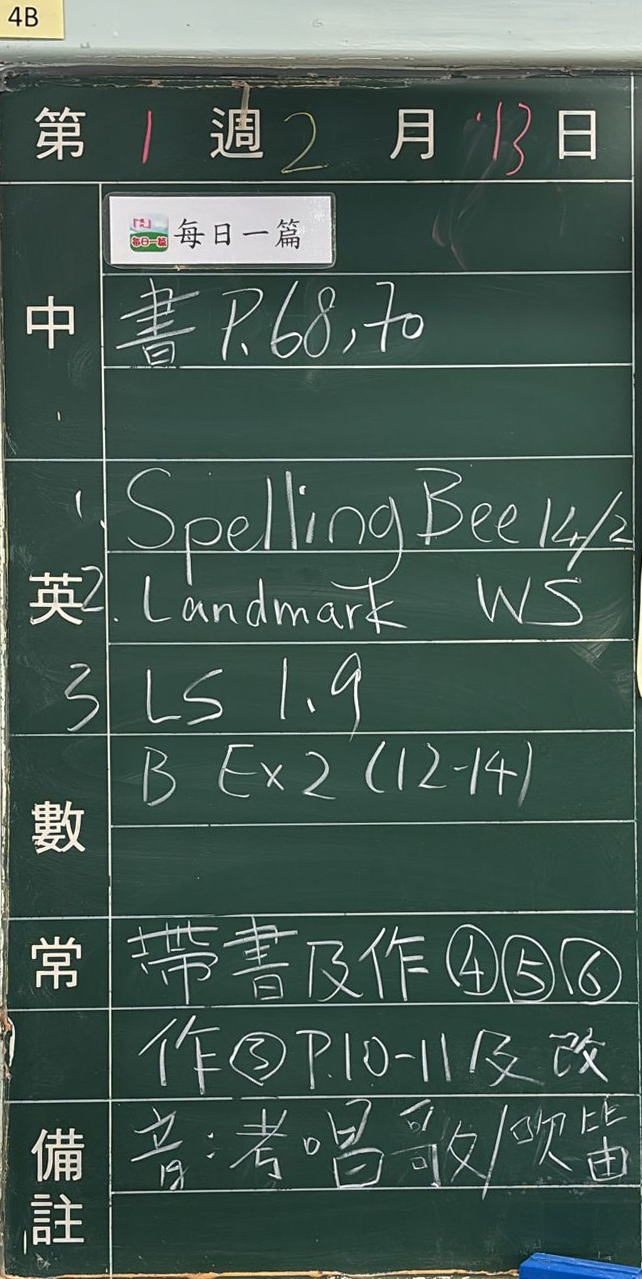 4B
第 1 週 2 月 13 日
每日一篇 每日一篇
中 書 P.68,70
英
1. Spelling Bee 14/2
2. Landmark WS
3 LS 1.9
數 B Ex 2 (12-14)
常 帶書及作④⑤⑥
作③P.10-11及改
備註 音:考唱歌/吹笛